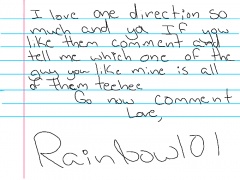 I love one direction so
much and ya If you
like them comment and
tell me which one of the
guy you like mine is all
of them teehee
Go now comment
Love,
Rainbow101